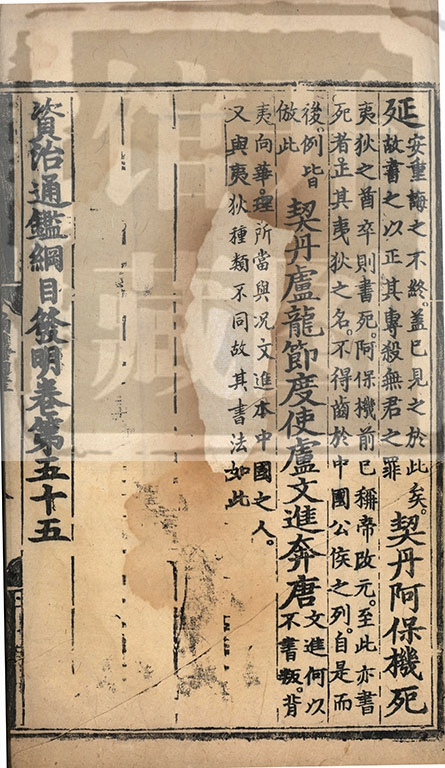 延
安重誨之不終。蓋已見之於此矣。
故書之以正其專殺無君之罪
契丹阿保機死
夷狄之酋卒則書死。阿保機前已稱帝改元。至此亦書
死者正其夷狄之名。不得齒於中國公侯之列。自是而
後。例皆
倣此
契丹盧龍節度使盧文進奔唐
文進何以
不書叛。背
夷向華。理所當與况文進本中國之人。
又與夷狄種類不同故其書法如此
資治通鑑綱目發明卷第五十五
馆藏